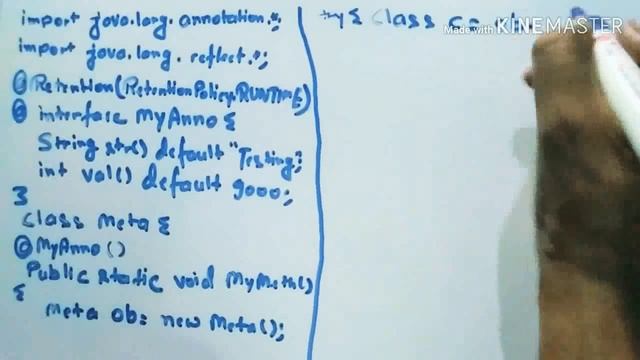 import java.lang.annotation.*;
import java.lang.reflect.*;
@Retention(RetentionPolicy.RUNTIME)
@ interface MyAnno {
String str() default "Testing;
int val() default 9000;
}
class Meta {
@MyAnno()
Public static void MyMeth()
{
Meta ob = new Meta();
try { Class c =
Made with KINEMASTER